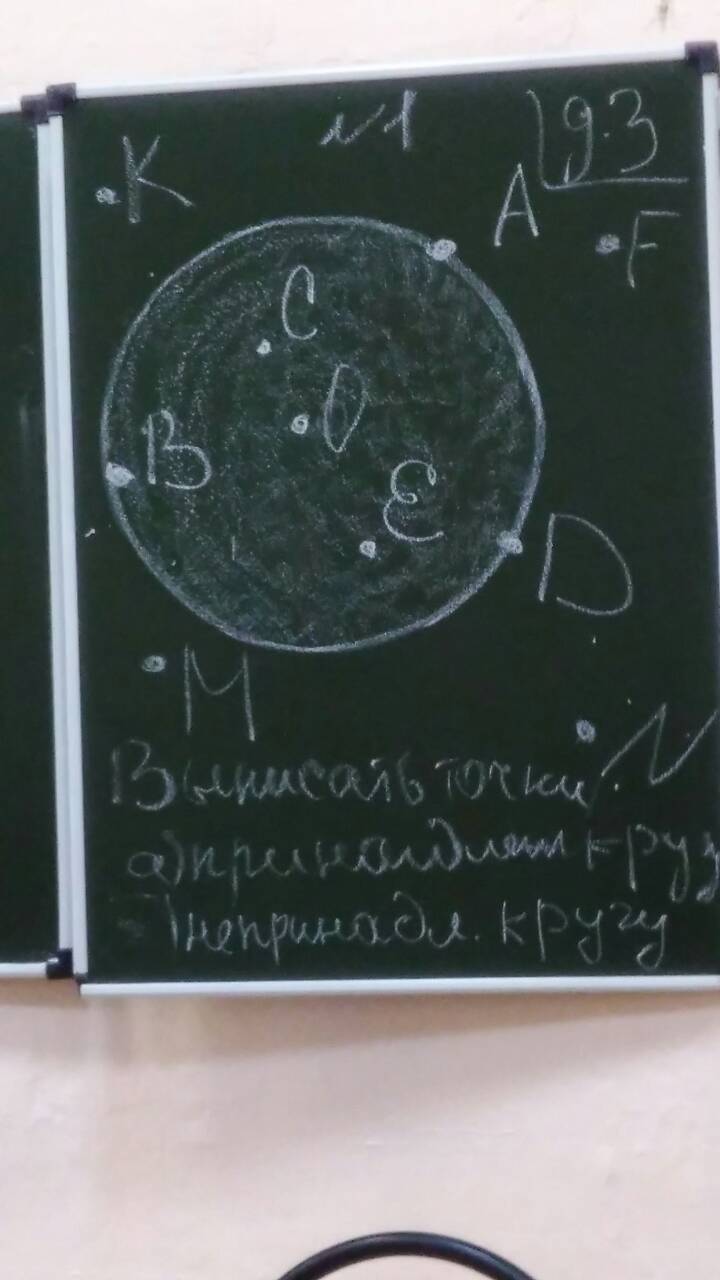 №1
Д.З
K
A
F
C
O
B
E
D
M
N
Выписать точки
а) принадлеж кругу
б) не принадл. кругу